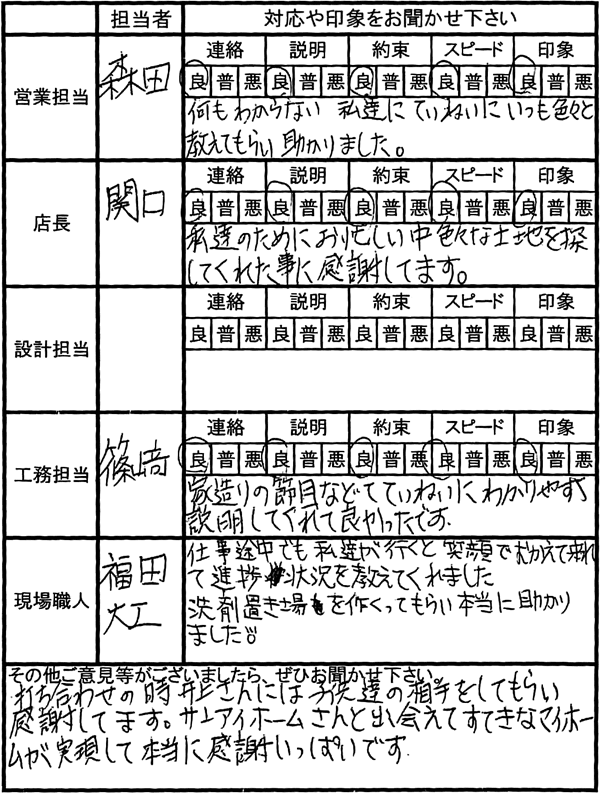 担当者 対応や印象をお聞かせ下さい
営業担当 森田
連絡 説明 約束 スピード 印象
良 普 悪 良 普 悪 良 普 悪 良 普 悪 良 普 悪
何もわからない 私達にていねいにいつも色々と
教えてもらい助かりました。
店長 関口
連絡 説明 約束 スピード 印象
良 普 悪 良 普 悪 良 普 悪 良 普 悪 良 普 悪
私達のためにお忙しい中色々な土地を探
してくれた事に感謝してます。
設計担当
連絡 説明 約束 スピード 印象
良 普 悪 良 普 悪 良 普 悪 良 普 悪 良 普 悪
工務担当 篠﨑
連絡 説明 約束 スピード 印象
良 普 悪 良 普 悪 良 普 悪 良 普 悪 良 普 悪
家造りの節目などでていねいにわかりやすく
説明してくれて良かったです.
現場職人 福田 大工
仕事途中でも私達が行くと笑顔でむかえて来れ
て進捗状況を教えてくれました
洗剤置き場を作くってもらい本当に助かり
ました
その他ご意見等がございましたら、ぜひお聞かせ下さい。
打ち合わせの時 さんには 達の相手をしてもらい
感謝してます。サンアイホームさんと出会えてすてきなマイホー
ムが実現して本当に感謝いっぱいです.